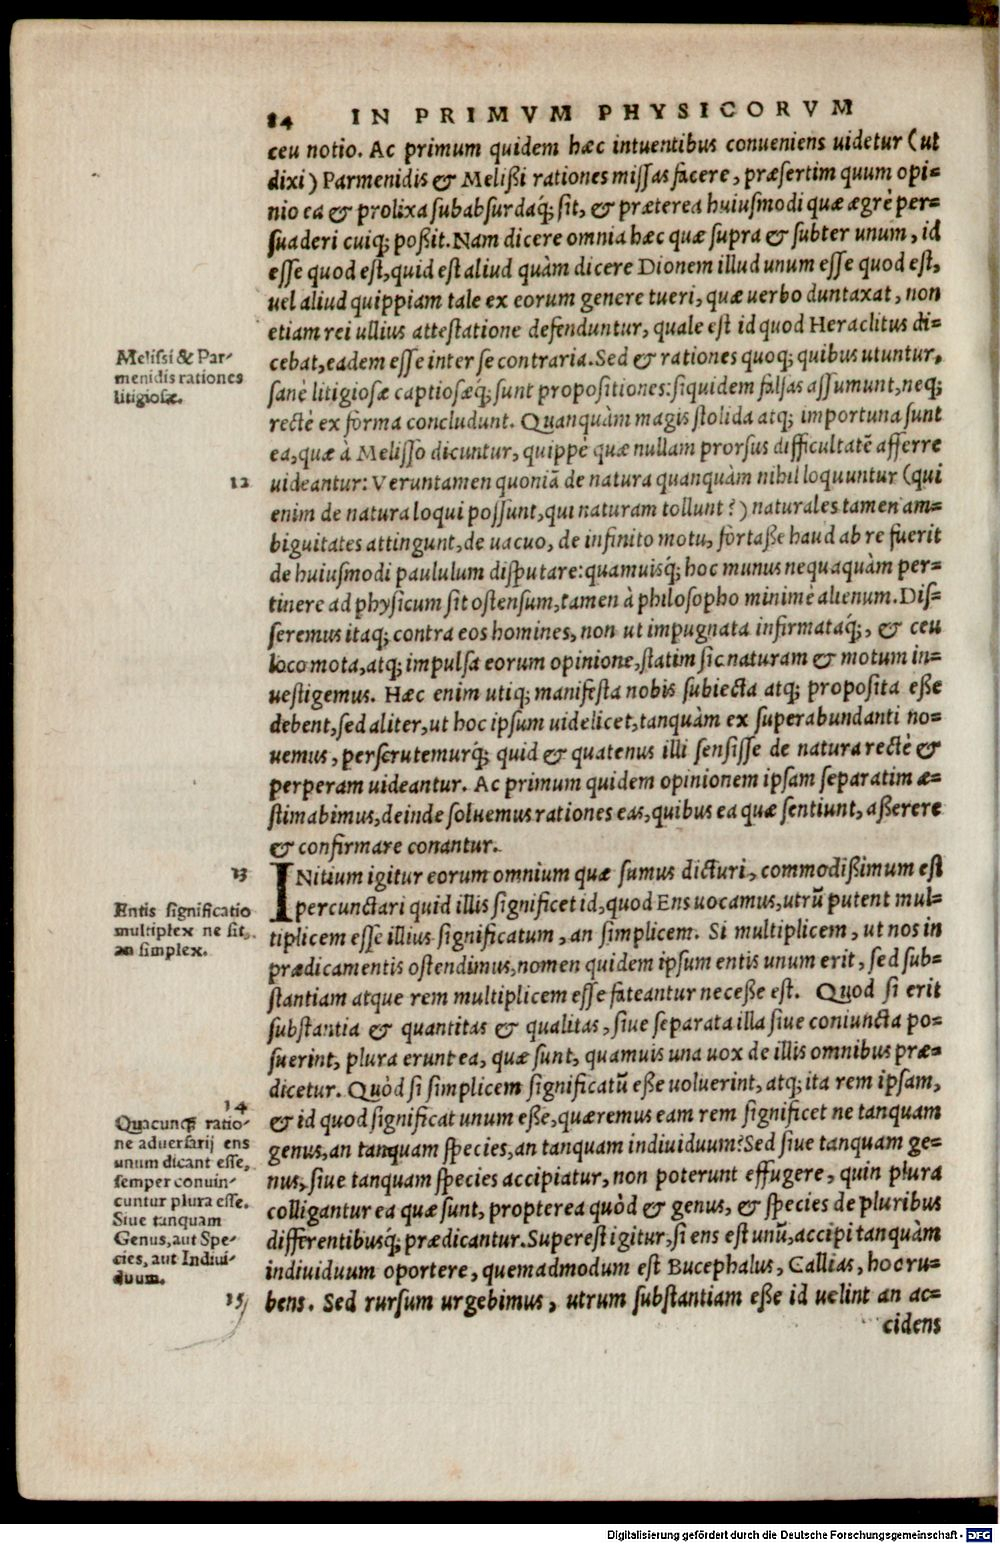 84 IN PRIMVM PHYSICORVM
ceu notio. Ac primum quidem hæc intuentibus conueniens uidetur (ut
dixi) Parmenidis & Melißi rationes missas facere, præsertim quum opi=
nio ea & prolixa subabsurdaq́; sit, & præterea huiusmodi quæ ægrè per=
suaderi cuiq; poßit. Nam dicere omnia hæc quæ supra & subter unum, id
esse quod est, quid est aliud quàm dicere Dionem illud unum esse quod est,
uel aliud quippiam tale ex eorum genere tueri, quæ uerbo duntaxat, non
etiam rei ullius attestatione defenduntur, quale est id quod Heraclitus di=
cebat, eadem esse inter se contraria. Sed & rationes quoq; quibus utuntur,
Melissi & Par-
menidis rationes
litigiosæ.
sanè litigiosæ captiosæq́; sunt propositiones: siquidem falsas assumunt, neq;
rectè ex forma concludunt. Quanquàm magis stolida atq; importuna sunt
ea, quæ à Melisso dicuntur, quippè quæ nullam prorsus difficultatē afferre
12 uideantur: Veruntamen quoniā de natura quanquàm nihil loquuntur (qui
enim de natura loqui possunt, qui naturam tollunt?) naturales tamen am=
biguitates attingunt, de uacuo, de infinito motu, fortaße haud ab re fuerit
de huiusmodi paululum disputare: quamuisq́; hoc munus nequaquàm per=
tinere ad physicum sit ostensum, tamen à philosopho minimè alienum. Dis=
seremus itaq; contra eos homines, non ut impugnata infirmataq́;, & ceu
loco mota, atq; impulsa eorum opinione, statim sic naturam & motum in=
uestigemus. Hæc enim utiq; manifesta nobis subiecta atq; proposita eße
debent, sed aliter, ut hoc ipsum uidelicet, tanquàm ex superabundanti no=
uemus, perscrutemurq́; quid & quatenus illi sensisse de natura rectè &
perperam uideantur. Ac primum quidem opinionem ipsam separatim æ=
stimabimus, deinde soluemus rationes eas, quibus ea quæ sentiunt, aßerere
& confirmare conantur.
13 INitium igitur eorum omnium quæ sumus dicturi, commodißimum est
Entis significatio
multiplex ne sit,
an simplex.
percunctari quid illis significet id, quod Ens uocamus, utrū putent mul=
tiplicem esse illius significatum, an simplicem. Si multiplicem, ut nos in
prædicamentis ostendimus, nomen quidem ipsum entis unum erit, sed sub=
stantiam atque rem multiplicem esse fateantur neceße est. Quod si erit
substantia & quantitas & qualitas, siue separata illa siue coniuncta po=
suerint, plura erunt ea, quæ sunt, quamuis una uox de illis omnibus præ=
dicetur. Quòd si simplicem significatū eße uoluerint, atq; ita rem ipsam,
14
Quacunq́; ratio-
ne aduersarij ens
unum dicant esse,
semper conuin-
cuntur plura esse.
Siue tanquam
Genus, aut Spe-
cies, aut Indiui-
duum.
& id quod significat unum eße, quæremus eam rem significet ne tanquam
genus, an tanquam species, an tanquam indiuiduum? Sed siue tanquam ge=
nus, siue tanquam species accipiatur, non poterunt effugere, quin plura
colligantur ea quæ sunt, propterea quòd & genus, & species de pluribus
differentibusq́; prædicantur. Superest igitur, si ens est unū, accipi tanquàm
indiuiduum oportere, quemadmodum est Bucephalus, Callias, hoc ru=
15 bens. Sed rursum urgebimus, utrum substantiam eße id uelint an ac=
cidens
Digitalisierung gefördert durch die Deutsche Forschungsgemeinschaft - DFG